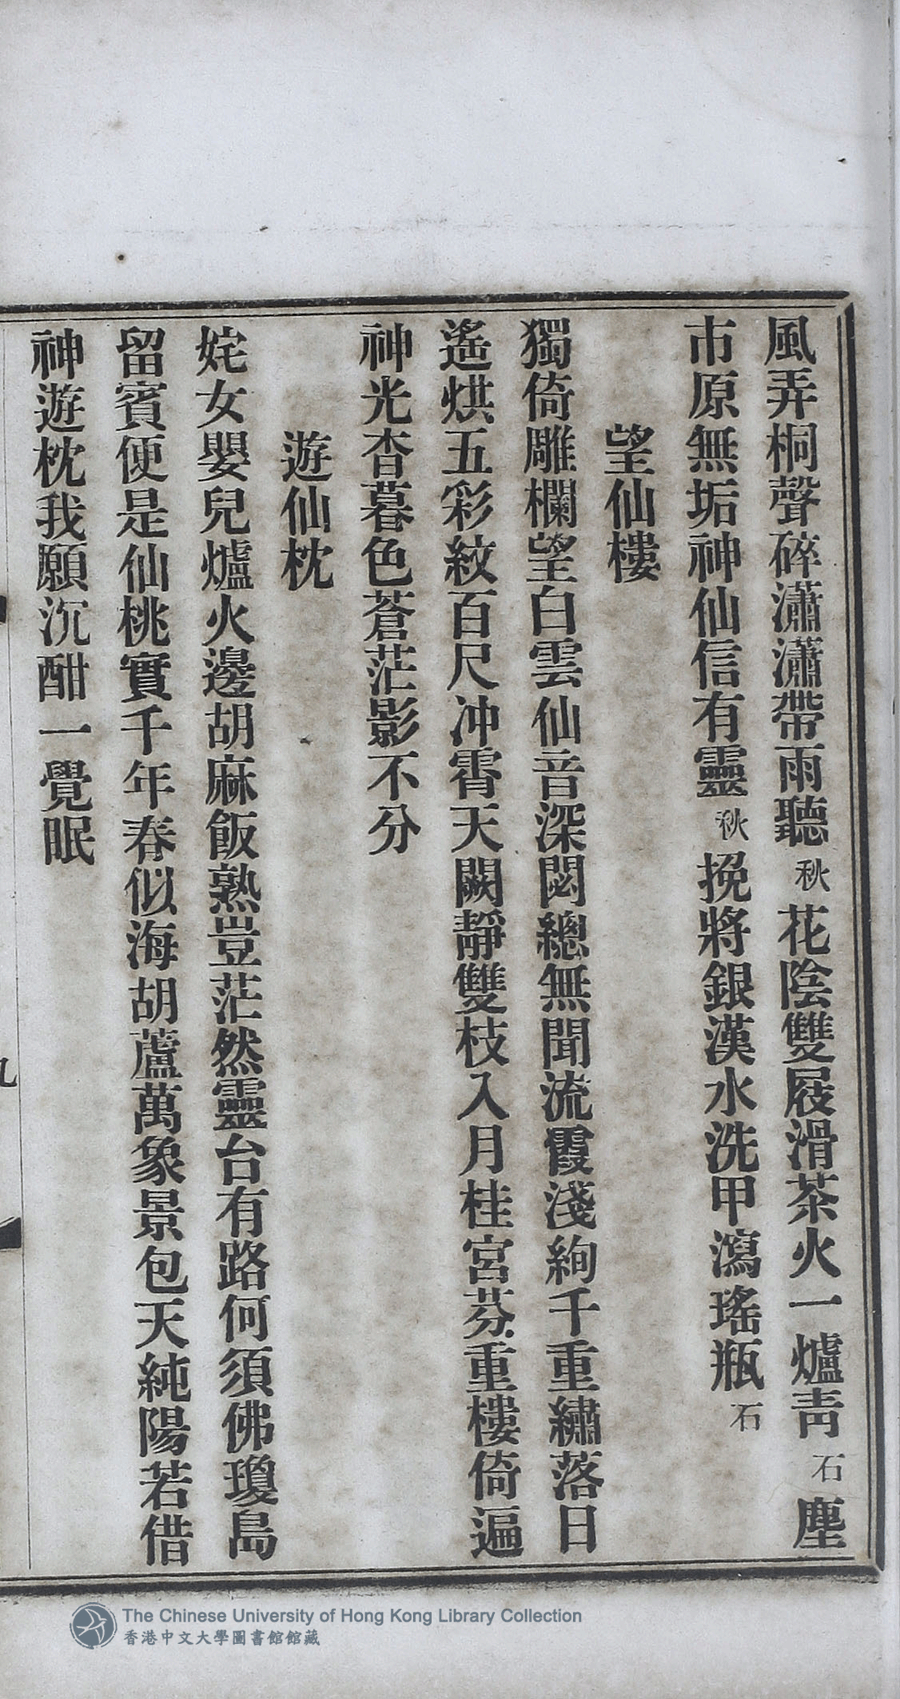 風弄桐聲碎瀟瀟帶雨聽秋花陰雙屐滑茶火一爐靑石塵
市原無垢神仙信有靈秋挽將銀漢水洗甲瀉瑤瓶石
望仙樓
獨倚雕欄望白雲仙音深閟總無聞流霞淺絢千重繡落日
遙烘五彩紋百尺冲霄天闕靜雙枝入月桂宮芬重樓倚遍
神光杳暮色蒼茫影不分
遊仙枕
姹女嬰兒爐火邊胡麻飯熟豈茫然靈台有路何須佛瓊島
留賓便是仙桃實千年春似海胡蘆萬象景包天純陽若借
神遊枕我願沉酣一覺眠
九
The Chinese University of Hong Kong Library Collection
香港中文大學圖書館館藏